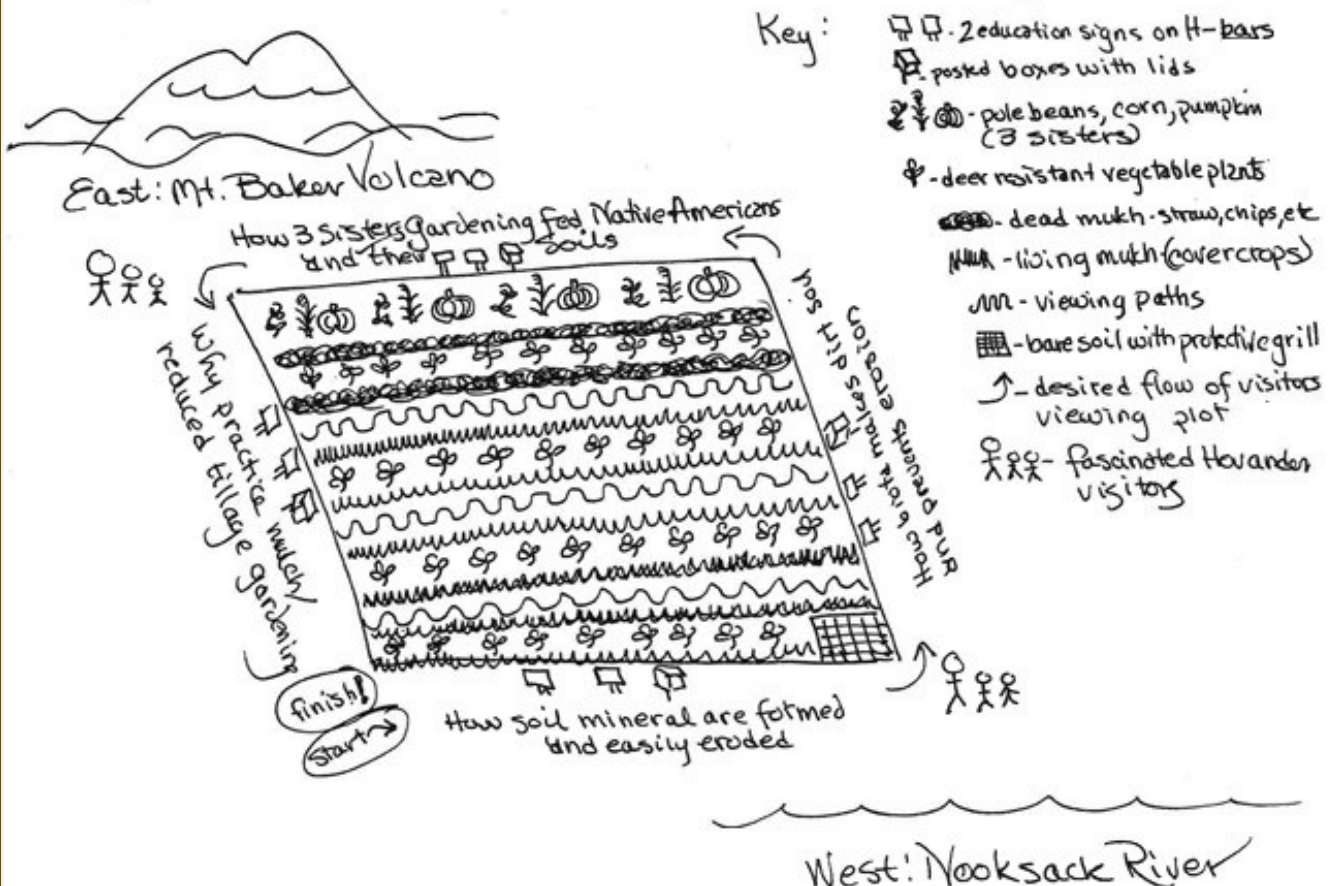 Key:
2 education signs on H-bars
posted boxes with lids
- pole beans, corn, pumpkin
(3 sisters)
- deer resistant vegetable plants
- dead mulch - straw, chips, etc
- living mulch (covercrops)
- viewing paths
- bare soil with protective grill
- desired flow of visitors
viewing plot
- fascinated Hovander
visitors
East: Mt. Baker Volcano
How 3 Sisters Gardening fed Native Americans
and their soils
Why practice mulch/
reduced tillage gardening
How biota makes dirt soil
and prevents erosion
finish!
Start→
How soil mineral are formed
and easily eroded
West: Nooksack River